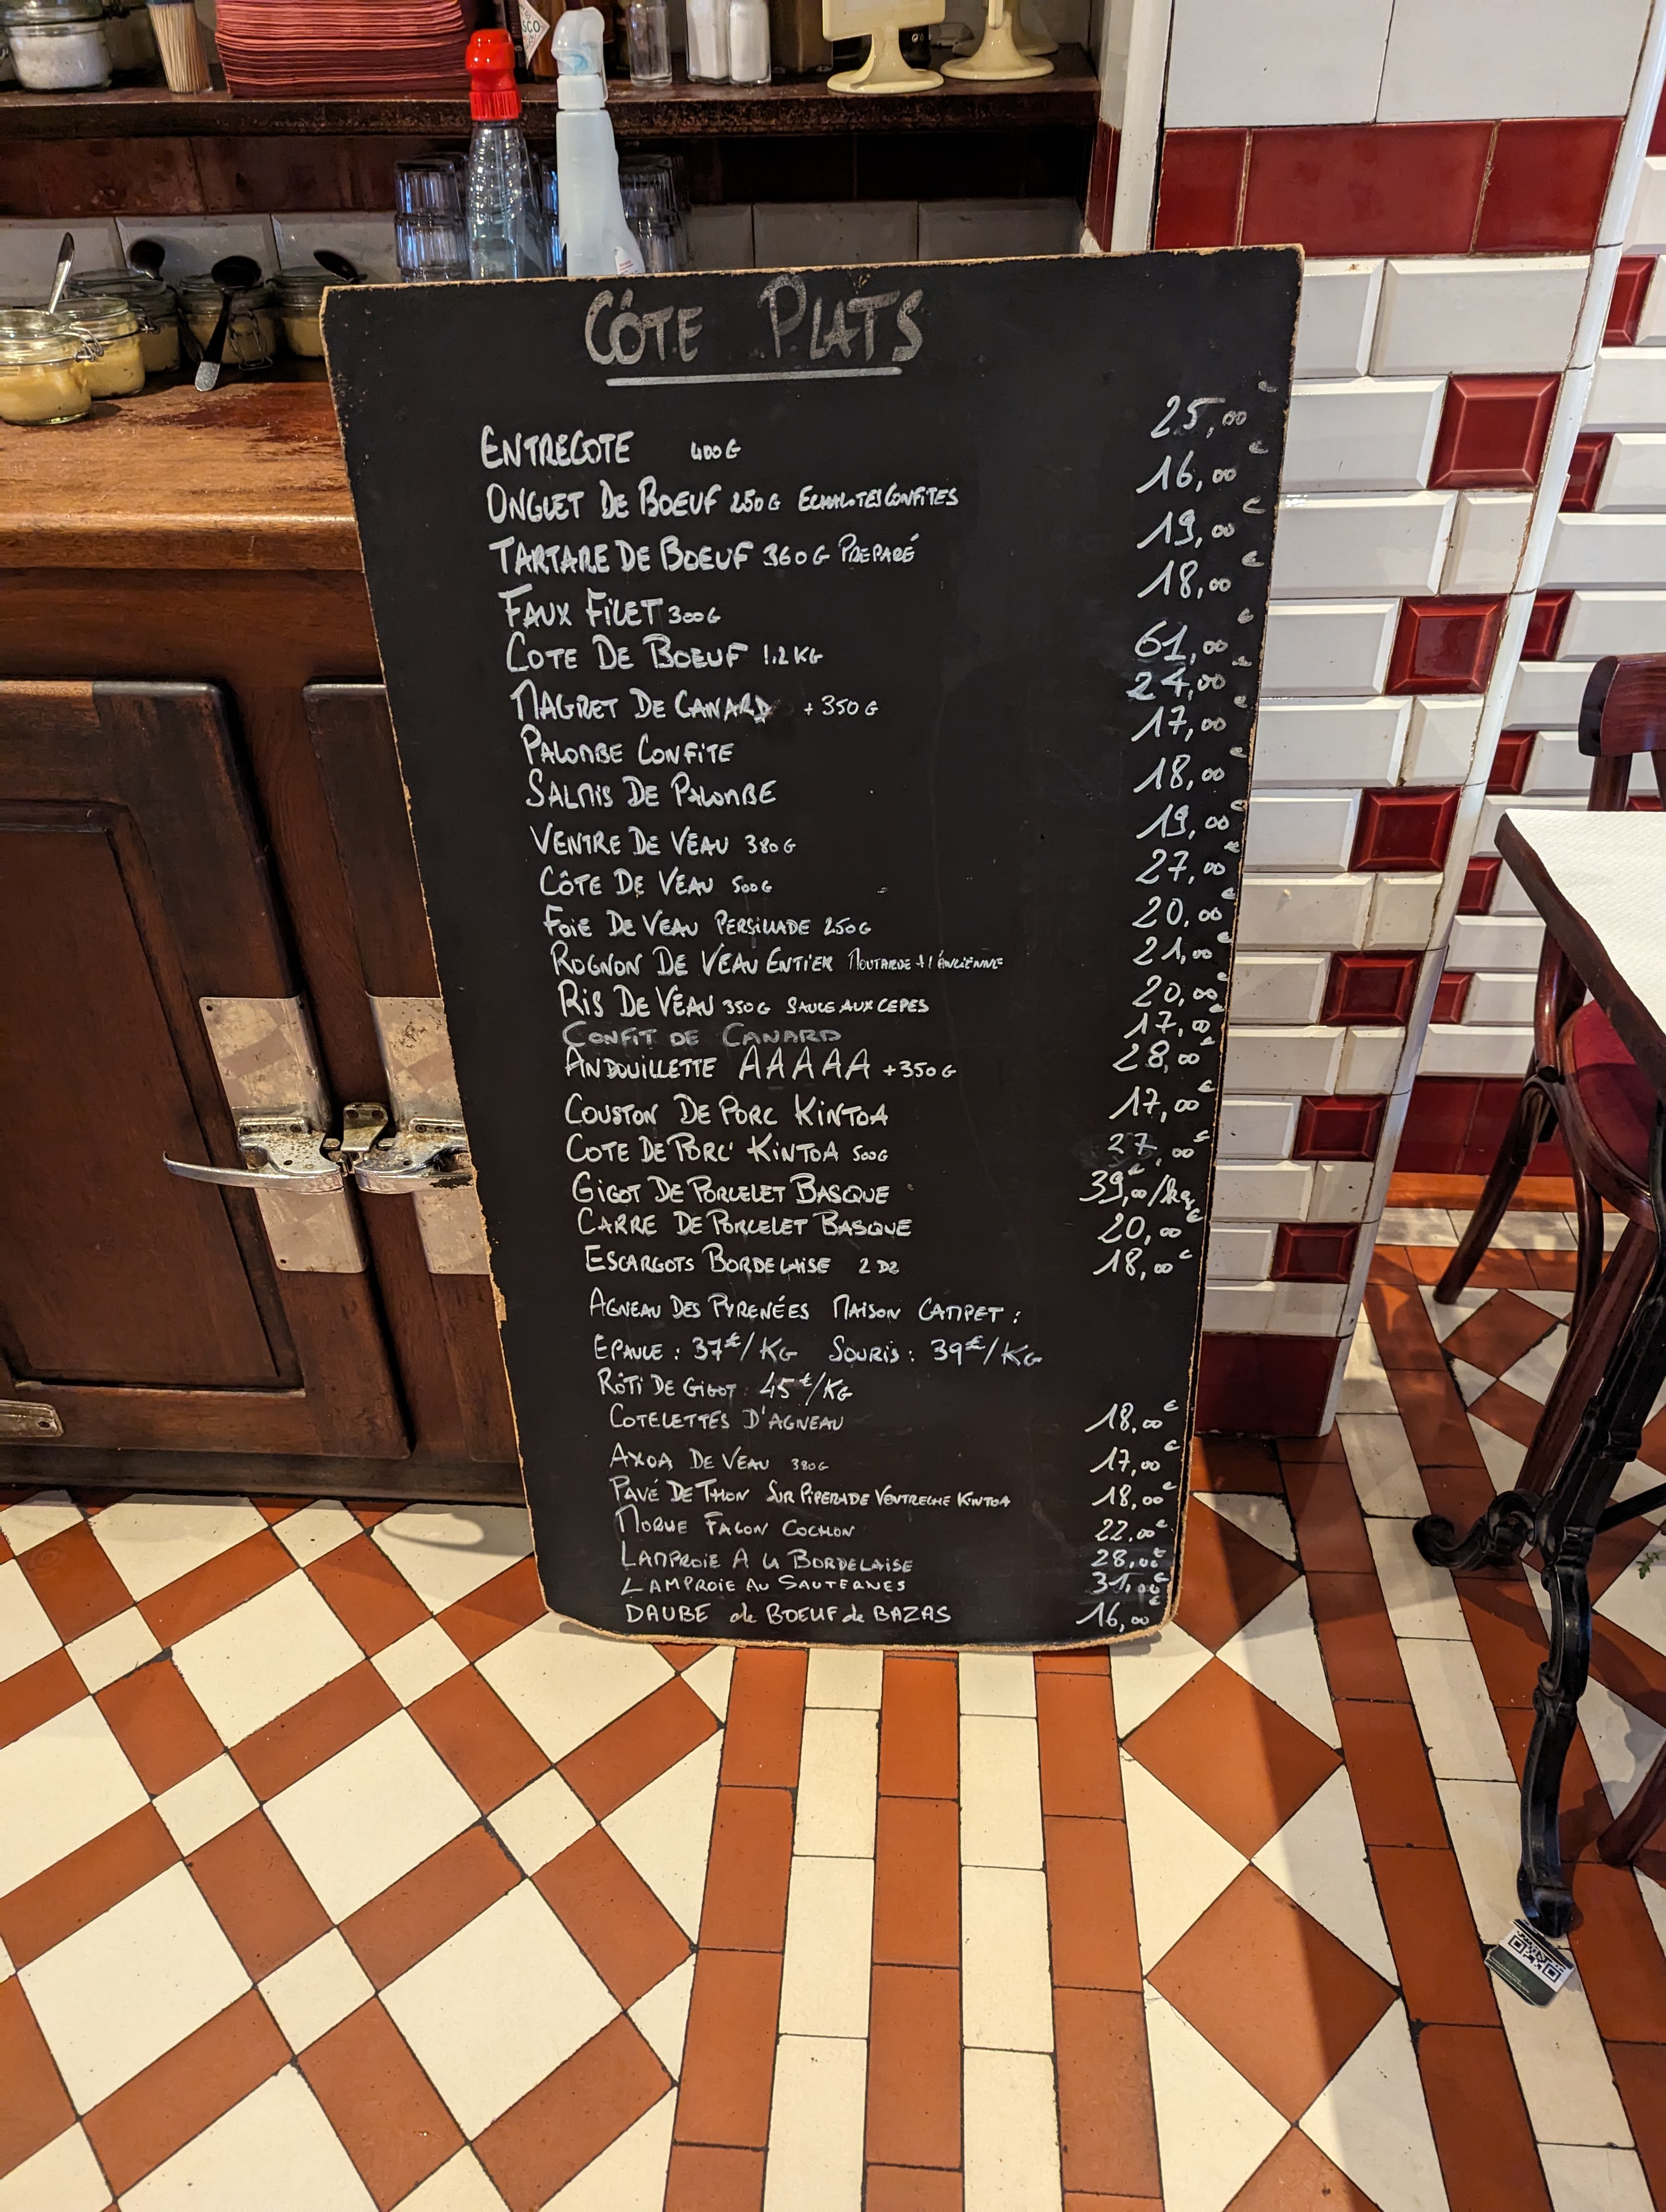 CÔTE PLATS
ENTRECOTE 400G 25,00€
ONGLET DE BOEUF 250G ECHALOTES CONFITES 16,00€
TARTARE DE BOEUF 360G PREPARÉ 19,00€
FAUX FILET 300G 18,00€
COTE DE BOEUF 1.2KG 61,00€
MAGRET DE CANARD +350G 24,00€
PALOMBE CONFITE 17,00€
SALMIS DE PALOMBE 18,00€
VENTRE DE VEAU 380G 19,00€
CÔTE DE VEAU 500G 27,00€
FOIE DE VEAU PERSILLADE 250G 20,00€
ROGNON DE VEAU ENTIER MOUTARDE A L'ANCIENNE 21,00€
RIS DE VEAU 350G SAUCE AUX CEPES 20,00€
CONFIT DE CANARD 17,00€
ANDOUILLETTE AAAAA +350G 28,00€
COUSTON DE PORC KINTOA 17,00€
COTE DE PORC KINTOA 500G 27,00€
GIGOT DE PORCELET BASQUE 39,00€/kg
CARRE DE PORCELET BASQUE 20,00€
ESCARGOTS BORDELAISE 2 DZ 18,00€
AGNEAU DES PYRENÉES MAISON CAMPET :
EPAULE : 37€/KG SOURIS : 39€/KG
RÔTI DE GIGOT : 45€/KG
COTELETTES D'AGNEAU 18,00€
AXOA DE VEAU 380G 17,00€
PAVÉ DE THON SUR PIPERADE VENTRECHE KINTOA 18,00€
MORUE FACON COCHON 22,00€
LAMPROIE A LA BORDELAISE 28,00€
LAMPROIE AU SAUTERNES 31,00€
DAUBE de BOEUF de BAZAS 16,00€